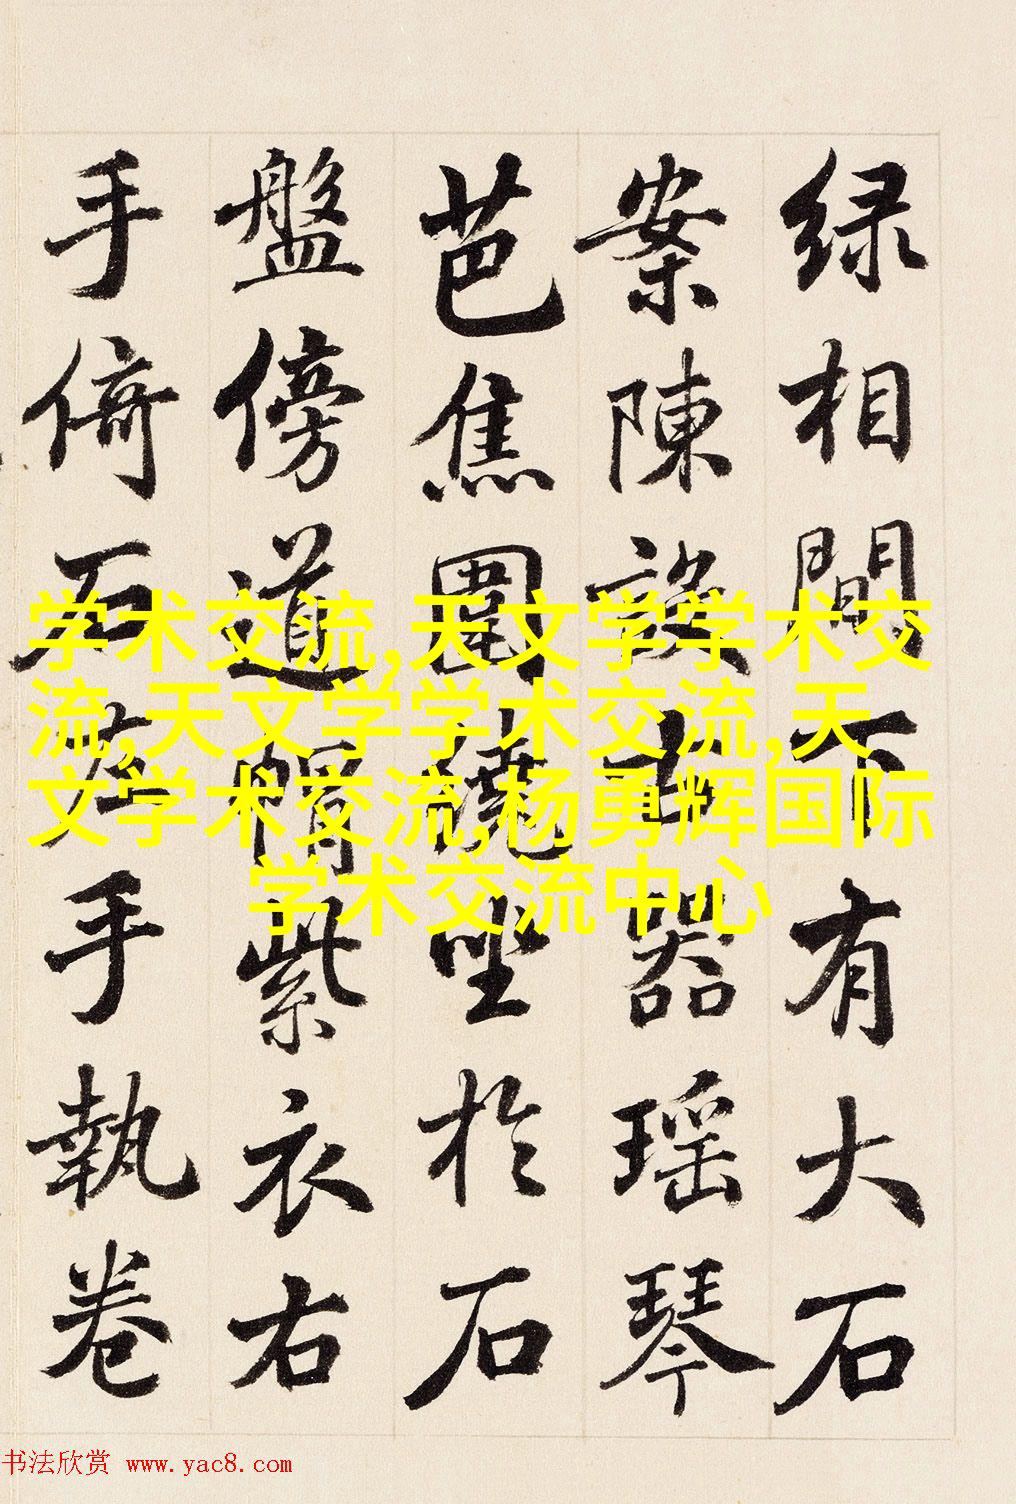 绿相間下有大石
案陳設古器瑶琴
芭焦圍繞坐於石
盤傍道帽紫衣右
手倚石左手執卷
学术交流,天文学学术交
流,天文学学术交流,天
文学术交流,杨勇辉国际
学术交流中心
书法欣赏 www.yac8.com